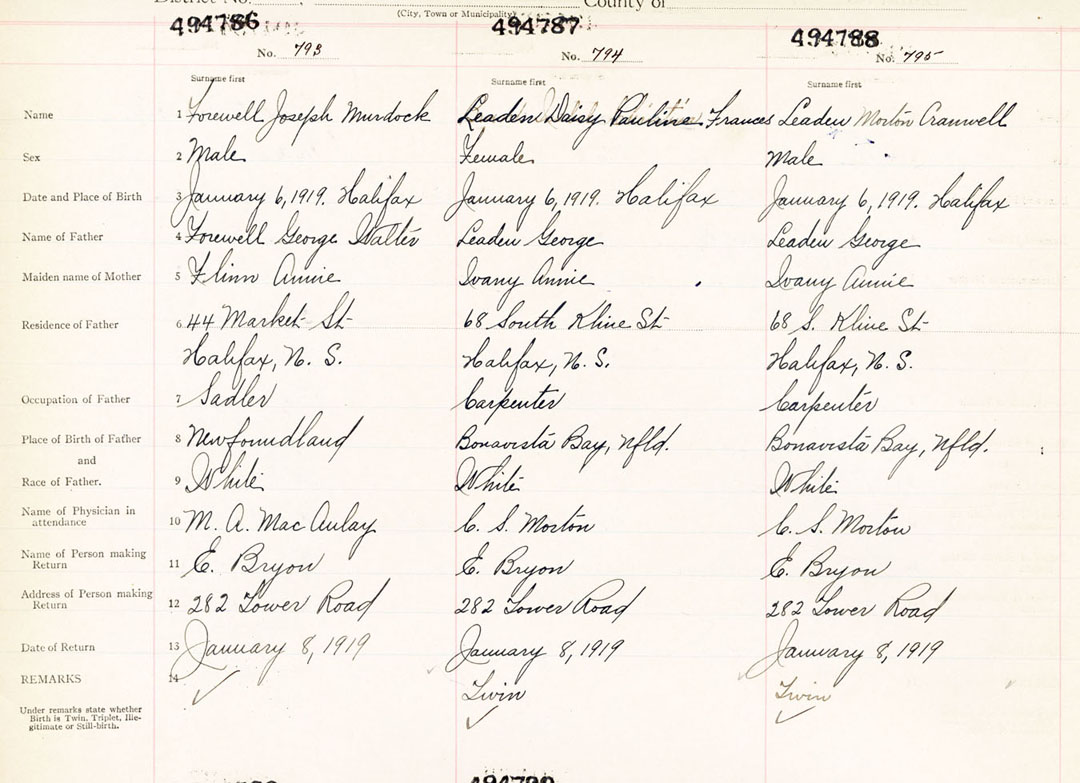 District No. County of
(City, Town or Municipality)
494786 494787 494788
No. 793 No. 794 No. 795
Surname first Surname first Surname first
Name 1 Forewell Joseph Murdock Leaden Daisy Pauline Frances Leaden Morton Cranwell
Sex 2 Male Female Male
Date and Place of Birth 3 January 6, 1919. Halifax January 6, 1919. Halifax January 6, 1919. Halifax
Name of Father 4 Forewell George Walter Leaden George Leaden George
Maiden name of Mother 5 Flinn Annie Ivany Annie Ivany Annie
Residence of Father 6 44 Market St 68 South Kline St 68 S. Kline St
Halifax, N. S. Halifax, N. S. Halifax, N. S.
Occupation of Father 7 Sadler Carpenter Carpenter
Place of Birth of Father 8 Newfoundland Bonavista Bay, Nfld. Bonavista Bay, Nfld.
and
Race of Father. 9 White White White
Name of Physician in attendance 10 M. A. MacAulay C. S. Morton C. S. Morton
Name of Person making Return 11 E. Bryon E. Bryon E. Bryon
Address of Person making Return 12 282 Tower Road 282 Tower Road 282 Tower Road
Date of Return 13 January 8, 1919 January 8, 1919 January 8, 1919
REMARKS 14 Twin Twin
Under remarks state whether
Birth is Twin, Triplet, Ille-
gitimate or Still-birth.